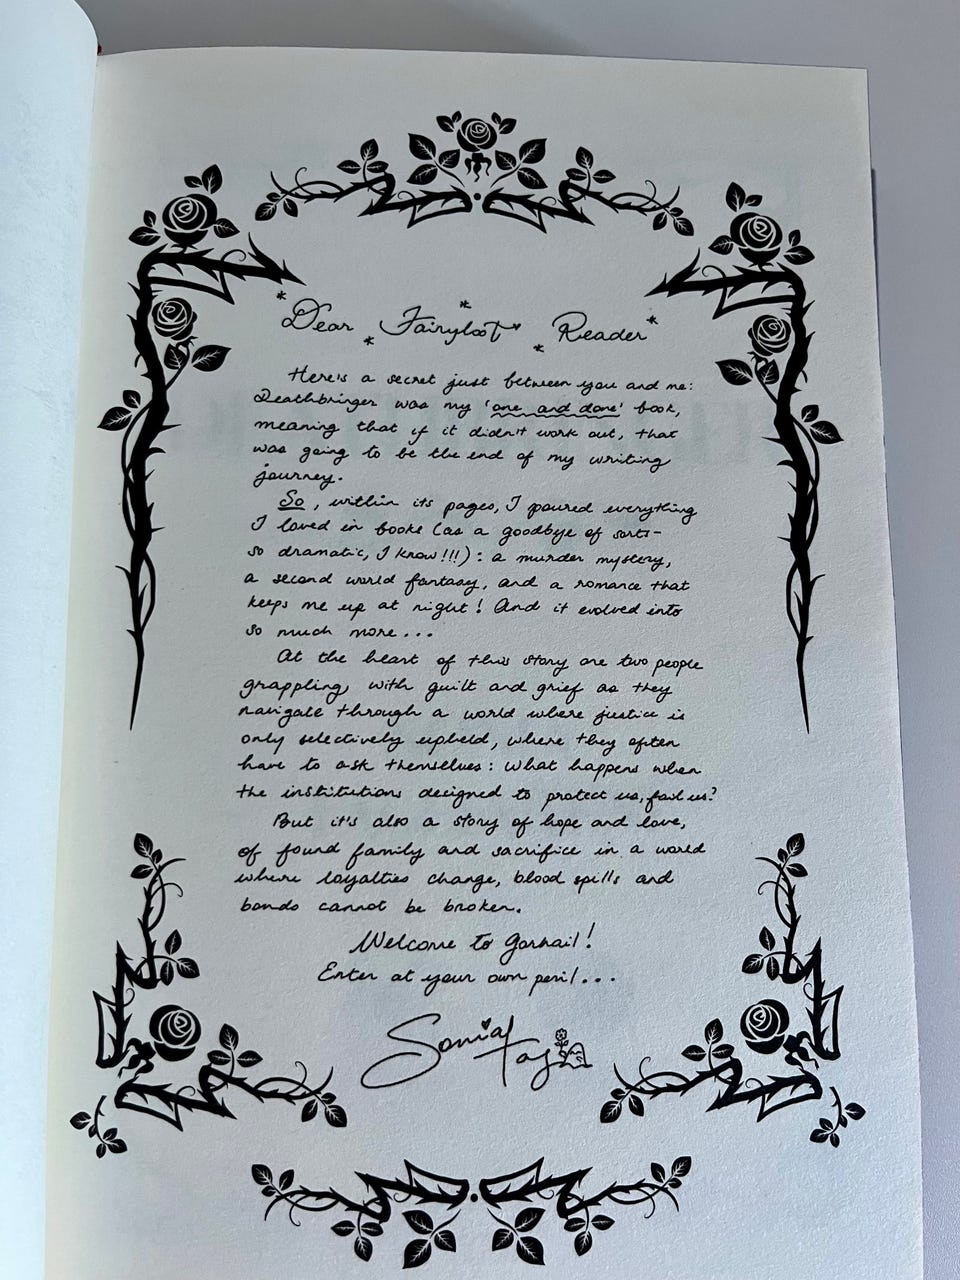 Dear Fairyloot Reader
Here's a secret just between you and me:
Deathbringer was my 'one and done' book,
meaning that if it didn't work out, that
was going to be the end of my writing
journey.
So, within its pages, I poured everything
I loved in books (as a goodbye of sorts-
so dramatic, I know!!!): a murder mystery,
a second world fantasy, and a romance that
keeps me up at night! And it evolved into
so much more...
At the heart of this story are two people
grappling with guilt and grief as they
navigate through a world where justice is
only selectively upheld, where they often
have to ask themselves: what happens when
the institutions designed to protect us, fail us?
But it's also a story of hope and love,
of found family and sacrifice in a world
where loyalties change, blood spills and
bonds cannot be broken.
Welcome to
Enter at your own peril...
Sonia Tag